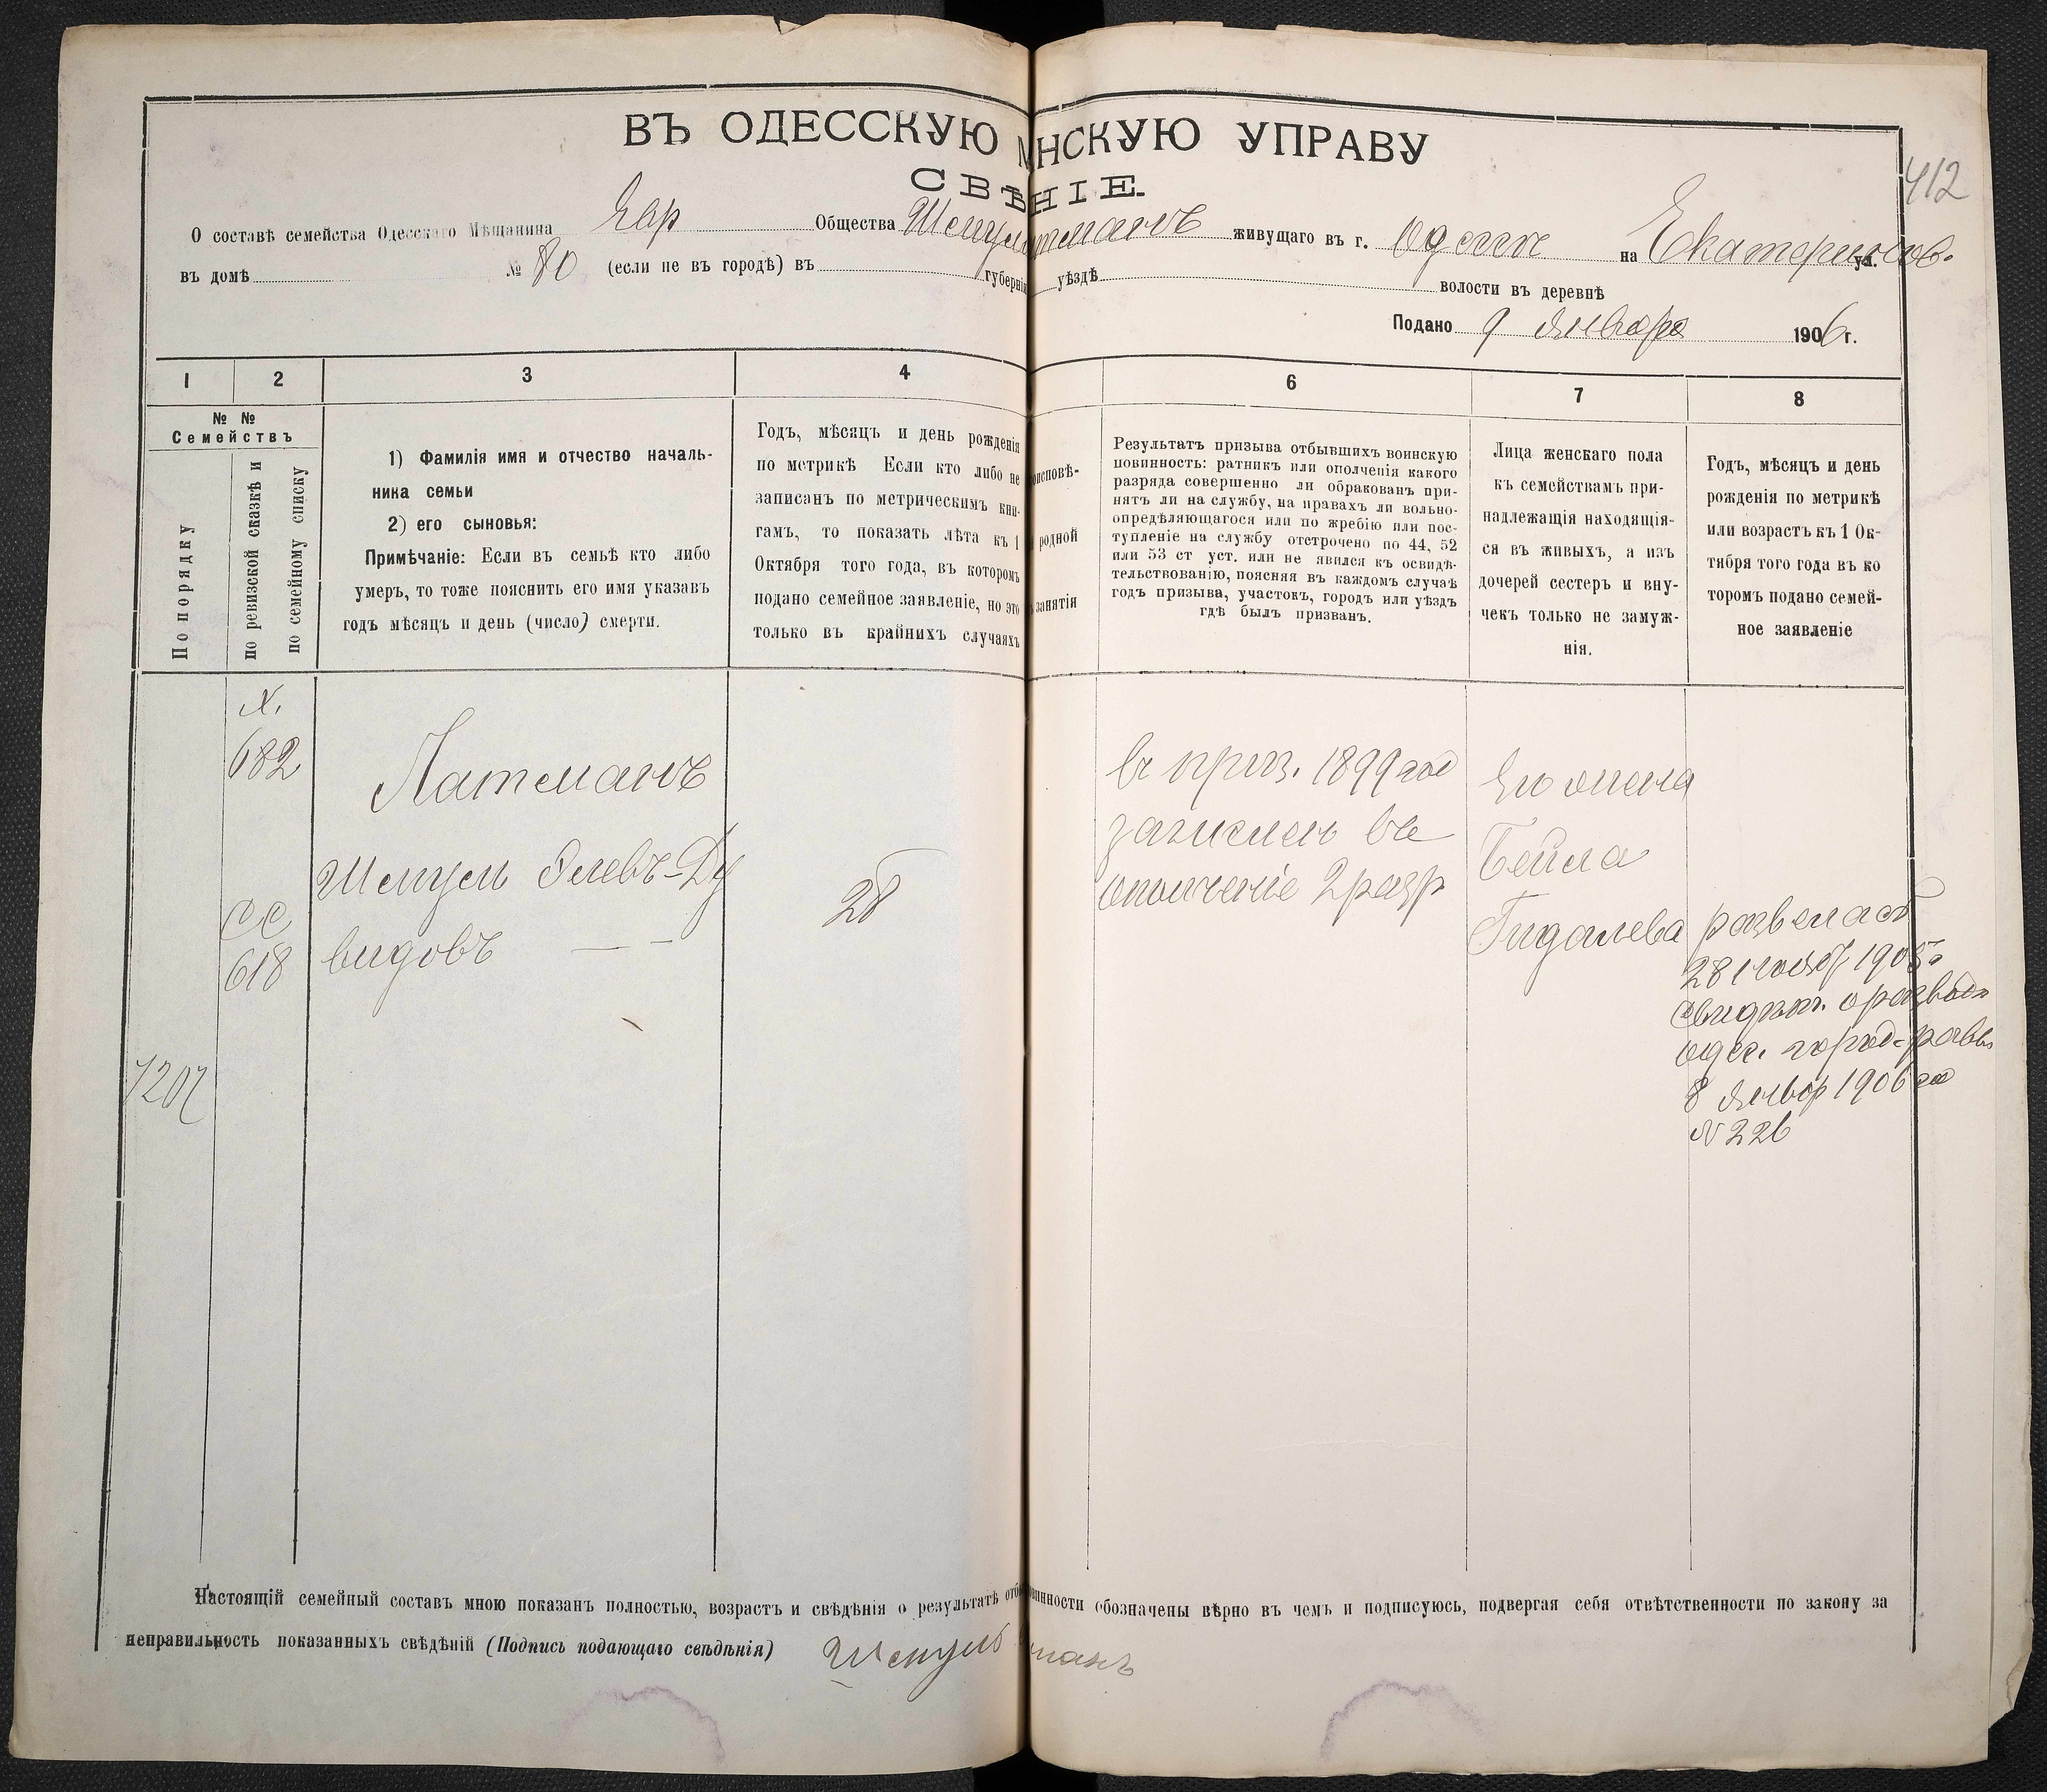 ВЪ ОДЕССКУЮ НСКУЮ УПРАВУ
412
СВѢНІЕ.
О составѣ семейства Одесскаго Мѣщанина Евр Общества Шмуля тманъ живущаго въ г. Одессѣ на Екатеринов. ул.
въ домѣ № 80 (если не въ городѣ) въ губерніи уѣздѣ волости въ деревнѣ
Подано 9 Января 1906 г.
1 2 3 4 6 7 8
№ №
Семействъ
По порядку
по ревизской сказкѣ и
по семейному списку
1) Фамилія имя и отчество началь-
ника семьи
2) его сыновья:
Примѣчаніе: Если въ семьѣ кто либо
умеръ, то тоже пояснить его имя указавъ
годъ мѣсяцъ и день (число) смерти.
Годъ, мѣсяцъ и день рожденія
по метрикѣ Если кто либо не
записанъ по метрическимъ кни-
гамъ, то показать лѣта къ 1
Октября того года, въ которомъ
подано семейное заявленіе, но это
только въ крайнихъ случаяхъ
оисповѣ-
родной
занятія
Результатъ призыва отбывшихъ воинскую
повинность: ратникъ или ополченія какого
разряда совершенно ли обракованъ при-
нятъ ли на службу, на правахъ ли вольно-
опредѣляющагося или по жребію или пос-
тупленіе на службу отстрочено по 44, 52
или 53 ст уст. или не явился къ освидѣ-
тельствованію, поясняя въ каждомъ случаѣ
годъ призыва, участокъ, городъ или уѣздъ
гдѣ былъ призванъ.
Лица женскаго пола
къ семействамъ при-
надлежащія находящія-
ся въ живыхъ, а изъ
дочерей сестеръ и вну-
чекъ только не замуж-
нія.
Годъ, мѣсяцъ и день
рожденія по метрикѣ
или возрастъ къ 1 Ок-
тября того года въ ко
торомъ подано семей-
ное заявленіе
682
СС
618
Латманъ
Шмуль Элевъ-Ду
видовъ
28
въ приз. 1899 год
зачисленъ въ
ополченіе 2 разр
Его жена
Бейла
Гидалева
развелась
28 Нояб. 1905 г.
свидѣт. о разводѣ
одес. город. равв.
8 Январ 1906 год
N 226
Настоящій семейный составъ мною показанъ полностью, возрастъ и свѣдѣнія о результатѣ отб винности обозначены вѣрно въ чемъ и подписуюсь, подвергая себя отвѣтственности по закону за
неправильность показанныхъ свѣдѣній (Подпись подающаго свѣдѣнія) Шмуль манъ